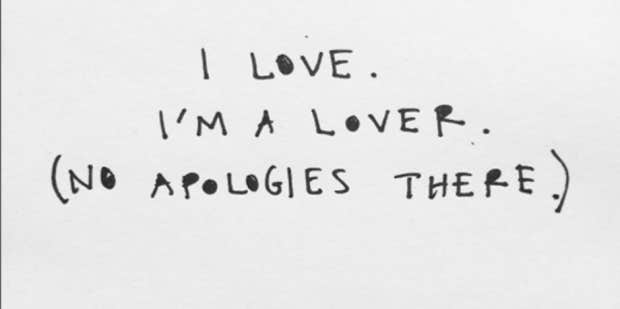 I LOVE.
I'M A LOVER.
(NO APOLOGIES THERE.)